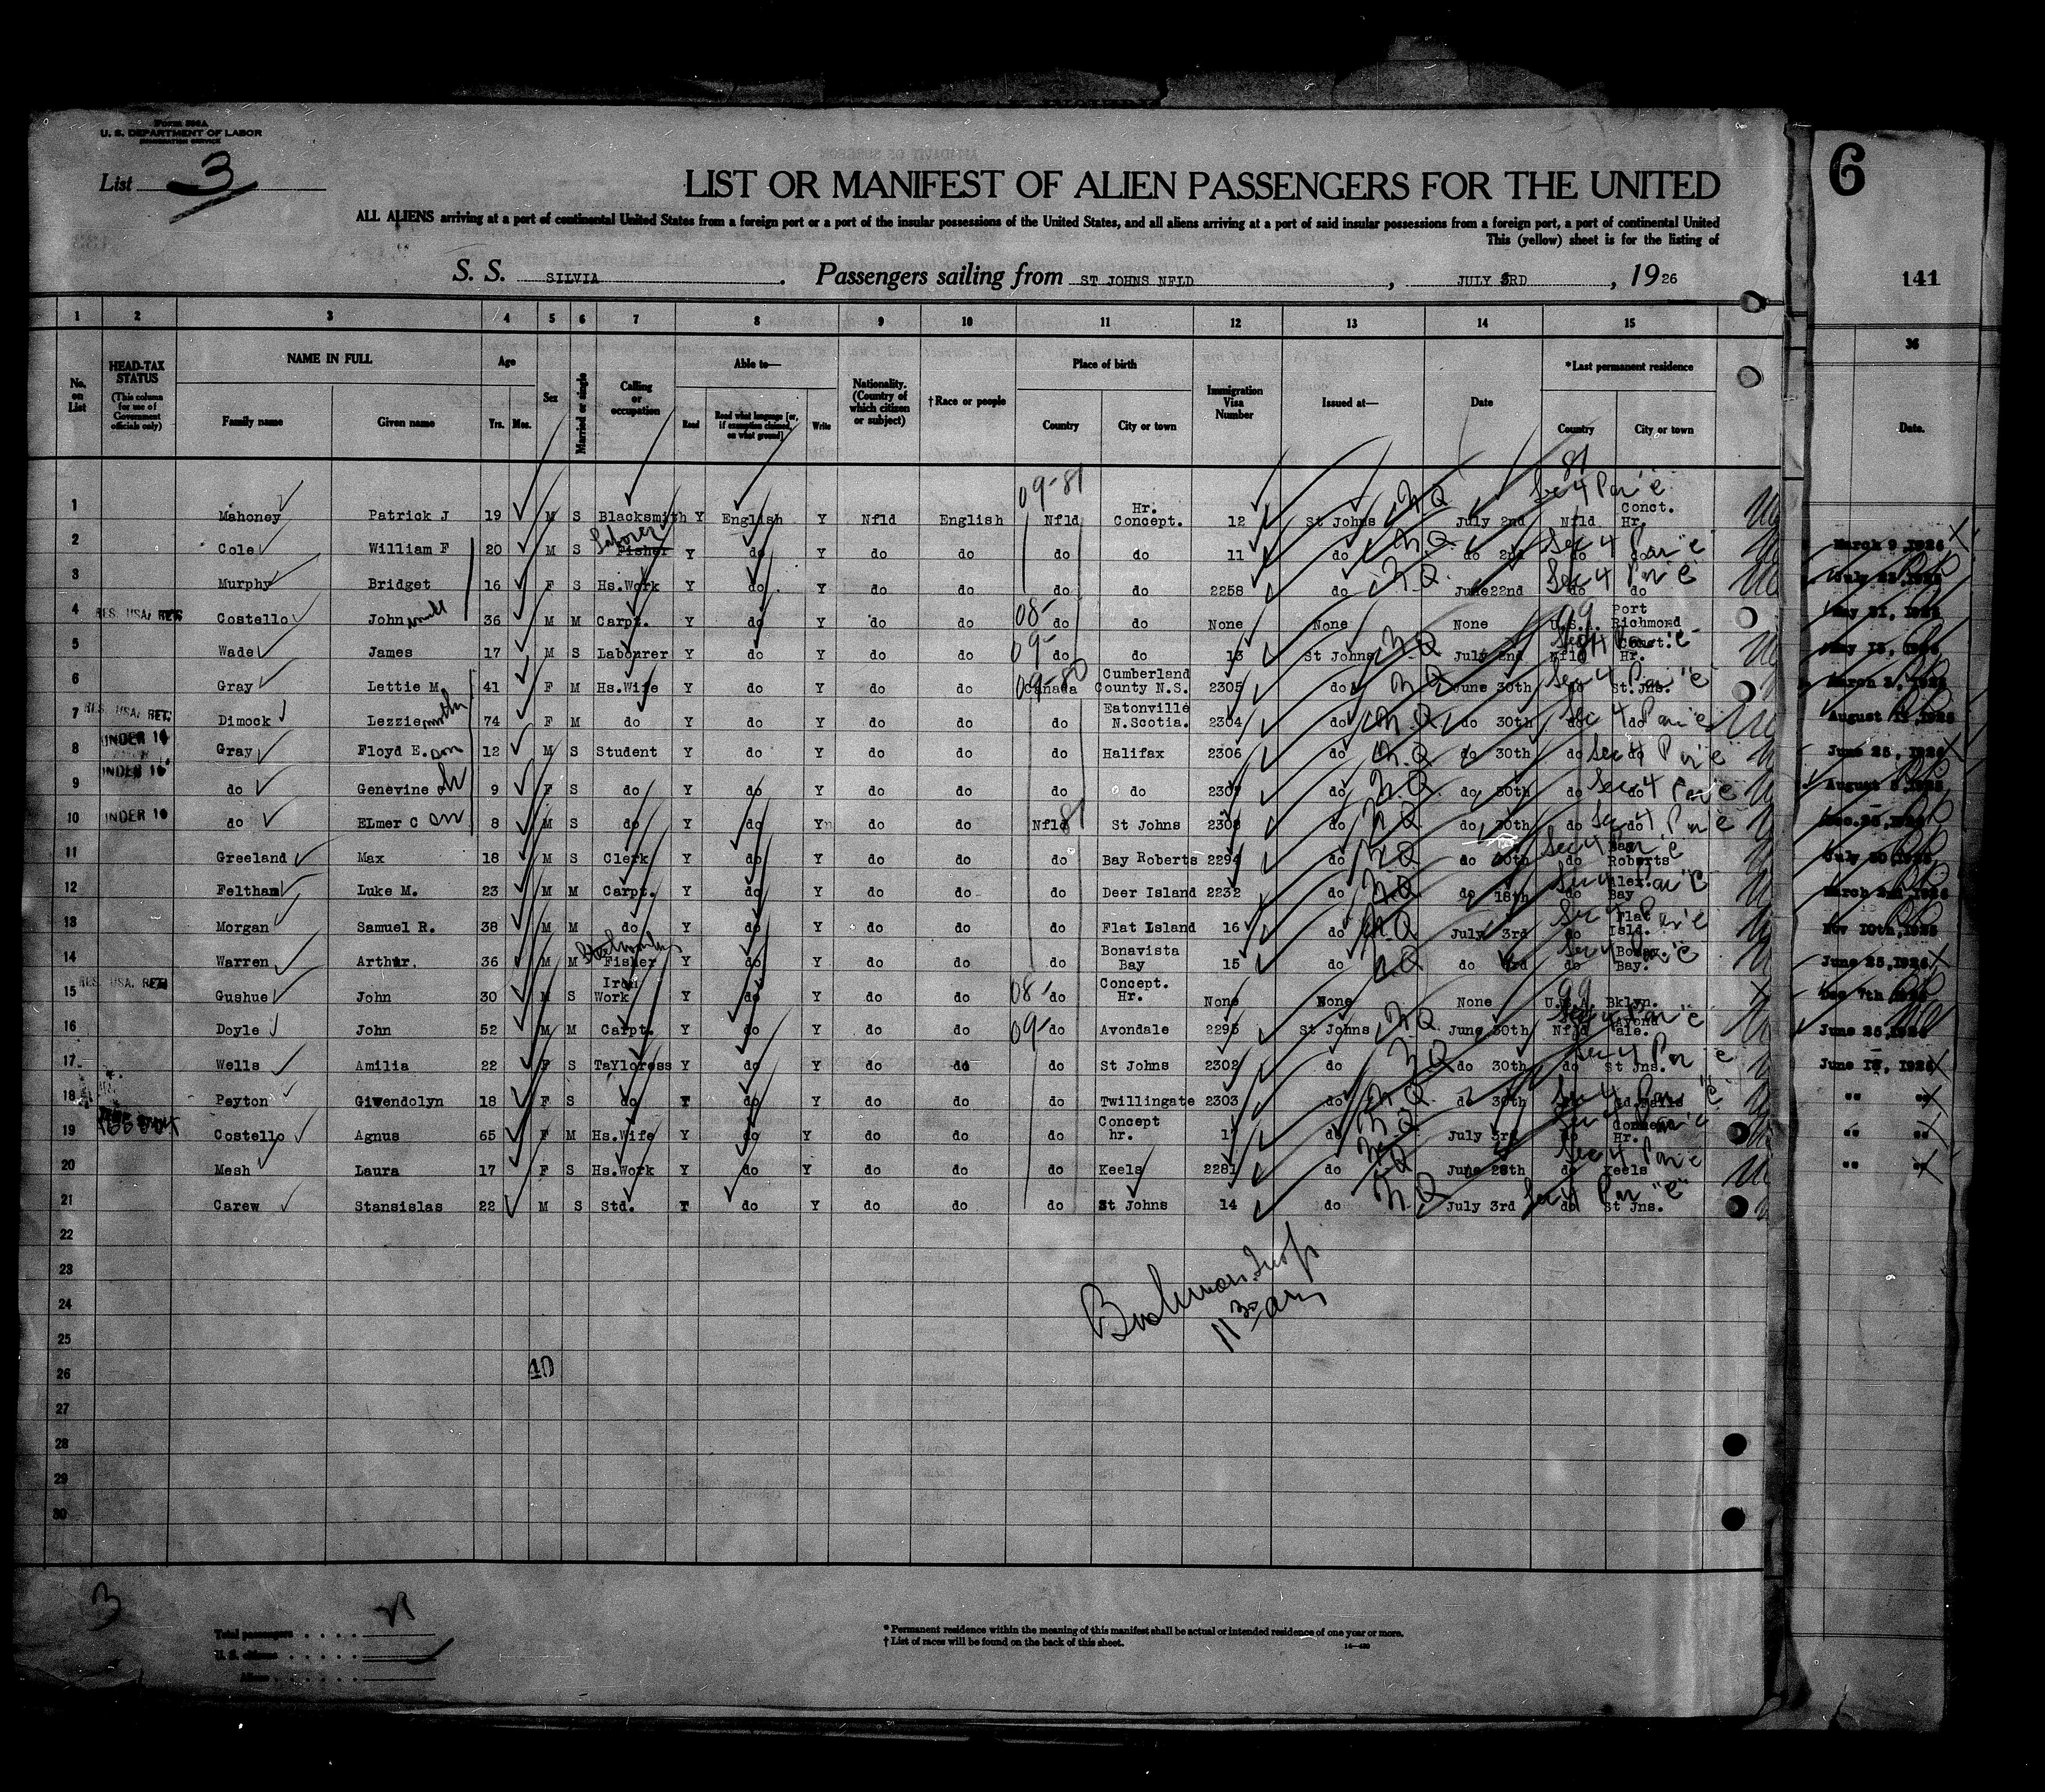 Form 500A
U. S. DEPARTMENT OF LABOR
IMMIGRATION SERVICE
List 3
LIST OR MANIFEST OF ALIEN PASSENGERS FOR THE UNITED
ALL ALIENS arriving at a port of continental United States from a foreign port or a port of the insular possessions of the United States, and all aliens arriving at a port of said insular possessions from a foreign port, a port of continental United
This (yellow) sheet is for the listing of
S. S. SILVIA . Passengers sailing from ST JOHNS NFLD , JULY 3RD , 1926
6
141
1 2 3 4 5 6 7 8 9 10 11 12 13 14 15 36
No. on List
HEAD-TAX STATUS (This column for use of Government officials only)
NAME IN FULL Family name Given name
Age Yrs. Mos.
Sex
Married or single
Calling or occupation
Able to— Read Read what language [or, if exemption claimed, on what ground] Write
Nationality. (Country of which citizen or subject)
†Race or people
Place of birth Country City or town
Immigration Visa Number
Issued at—
Date
*Last permanent residence Country City or town
Date.
1 Mahoney Patrick J 19 M S Blacksmith Y English Y Nfld English 09-81 Nfld Hr. Concept. 12 St Johns N.Q. July 2nd Nfld Conct. Hr. Sec 4 Par "e"
2 Cole William F 20 M S Fisher Laborer Y do Y do do do do 11 do N.Q. do 2nd do do Sec 4 Par "e" March 9, 1926
3 Murphy Bridget 16 F S Hs.Work Y do Y do do do do 2258 do N.Q. June 22nd do do Sec 4 Par "e"
4 RES. USA. RET. Costello John 36 M M Carpt. Y do Y do do 08- do do None None None U.S.A. Port Richmond 99
5 Wade James 17 M S Labourer Y do Y do do 09- do do 13 St Johns N.Q. July 2nd Nfld Conct. Hr.
6 Gray Lettie M. 41 F M Hs.Wife Y do Y do do 09-80 Canada Cumberland County N.S. 2305 do N.Q. June 30th do St.Jns. Sec 4 Par "e"
7 RES. USA. RET. Dimock Lezzie mother 74 F M do Y do Y do do do Eatonville N.Scotia. 2304 do N.Q. do 30th do do Sec 4 Par "e"
8 UNDER 16 Gray Floyd E. son 12 M S Student Y do Y do do do Halifax 2306 do N.Q. do 30th do do Sec 4 Par "e" June 25, 1926
9 UNDER 16 do Genevine 9 F S do Y do Y do do do do 2307 do N.Q. do 30th do do Sec 4 Par "e"
10 UNDER 16 do ELmer C son 8 M S do Y do Y do do Nfld 81 St Johns 2308 do N.Q. do 30th do do Sec 4 Par "e"
11 Greeland Max 18 M S Clerk Y do Y do do do Bay Roberts 2294 do N.Q. do 30th do Bay Roberts
12 Feltham Luke M. 23 M M Carpt. Y do Y do do do Deer Island 2232 do N.Q. do 18th do Alex. Bay
13 Morgan Samuel R. 38 M M do Y do Y do do do Flat Island 16 do N.Q. July 3rd do Flat Isld. Nov 10th, 1925
14 Warren Arthur. 36 M M Fisher Y do Y do do do Bonavista Bay 15 do N.Q. do 3rd do Bonav. Bay. June 25, 1926
15 RES. USA. RET. Gushue John 30 M S Iron Work Y do Y do do 08- do Concept. Hr. None None None U.S.A. Bklyn. 99
16 Doyle John 52 M M Carpt. Y do Y do do 09- do Avondale 2295 St Johns N.Q. June 30th Nfld Avondale. June 25, 1926
17 Wells Amilia 22 F S TaYloress Y do Y do do do St Johns 2302 do N.Q. do 30th do St Jns.
18 Peyton Giwendolyn 18 F S do Y do Y do do do Twillingate 2303 do N.Q. do 30th do
19 Costello Agnus 65 F M Hs.Wife Y do Y do do do Concept hr. 17 do N.Q. July 3rd do Hr.
20 Mesh Laura 17 F S Hs.Work Y do Y do do do Keels 2281 do N.Q. June 28th do Keels Sec 4 Par "e"
21 Carew Stansislas 22 M S Std. Y do Y do do do St Johns 14 do N.Q. July 3rd do St Jns. Sec 4 Par "e"
22
23
24
25
26
27
28
29
30
11 30 am
40
3
Total passengers
U. S. citizens
Aliens
* Permanent residence within the meaning of this manifest shall be actual or intended residence of one year or more.
† List of races will be found on the back of this sheet.